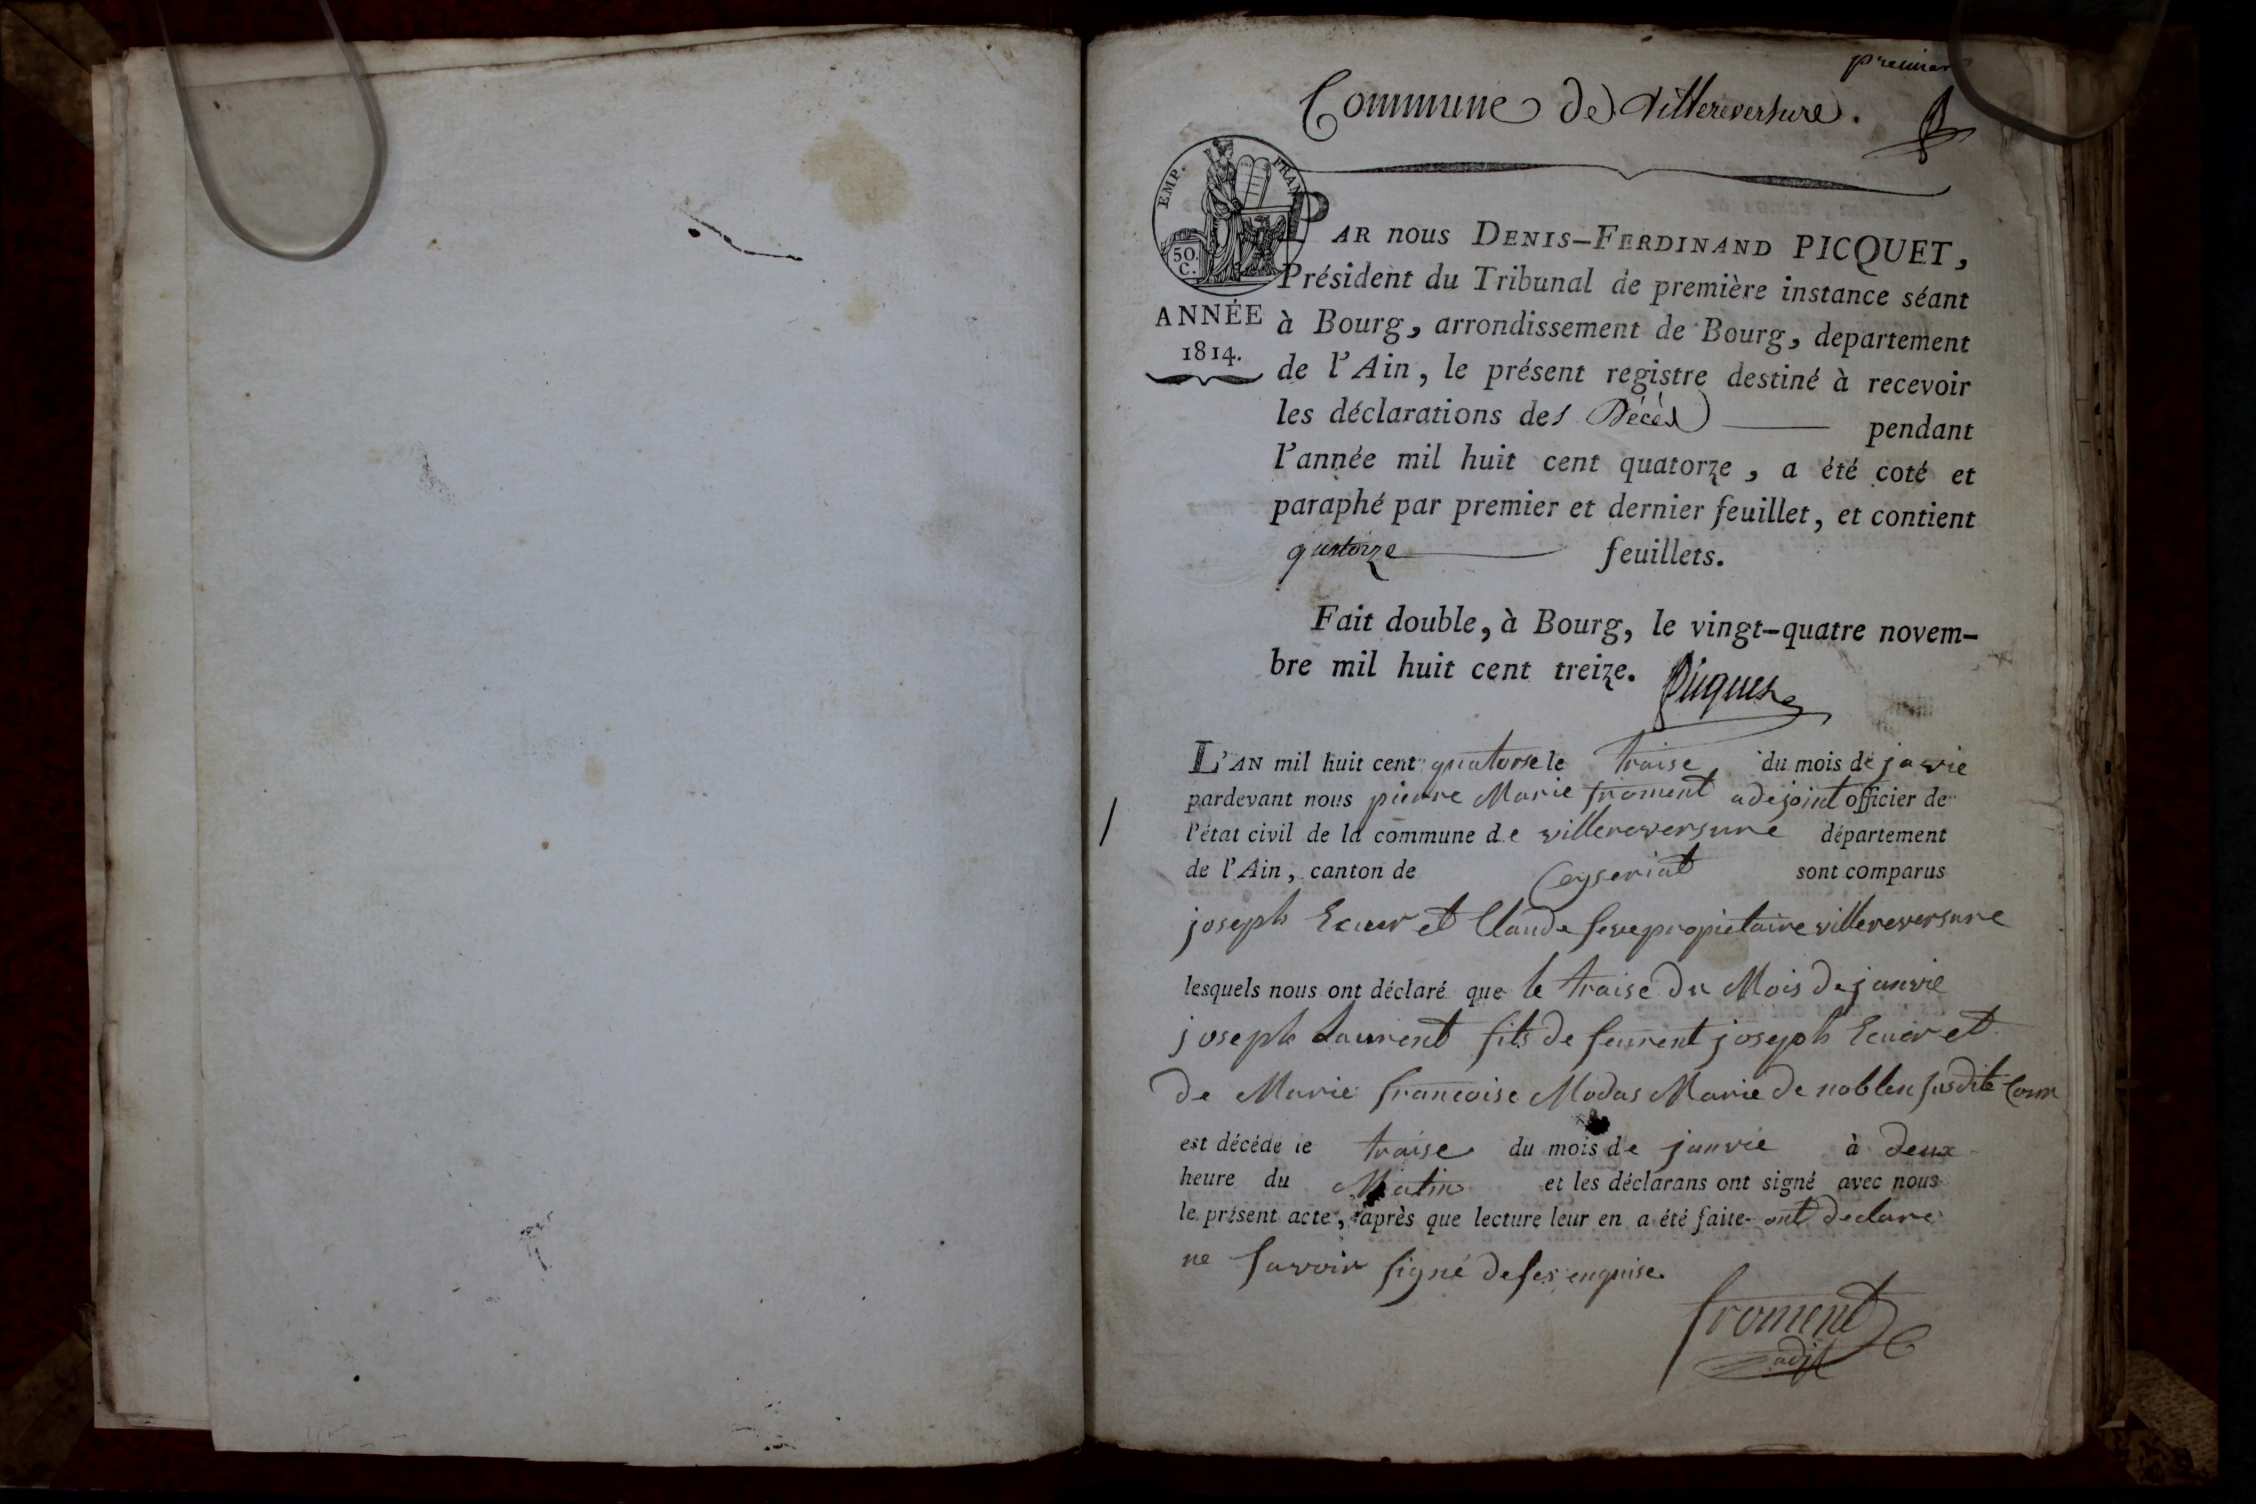 premier
Commune de Villereversure.
EMP. FRAN
50.
C.
ANNÉE
1814.
PAR nous DENIS-FERDINAND PICQUET,
Président du Tribunal de première instance séant
à Bourg, arrondissement de Bourg, departement
de l'Ain, le présent registre destiné à recevoir
les déclarations des Décès pendant
l'année mil huit cent quatorze, a été coté et
paraphé par premier et dernier feuillet, et contient
quatorze feuillets.
Fait double, à Bourg, le vingt-quatre novem-
bre mil huit cent treize. Picquet
L'AN mil huit cent quatorse le traise du mois de javie
pardevant nous pierre Marie froment adejoint officier de
l'état civil de la commune de villereversure département
de l'Ain, canton de Ceyseriat sont comparus
joseph Ecuer et Claude propietaire villereversure
lesquels nous ont déclaré que le traise du Mois de janvie
joseph Laurent fils de joseph Ecuer et
de Marie francoise Modas Marie de noblen susdite Com
est décédé le traise du mois de janvie à deux
heure du Matin et les déclarans ont signé avec nous
le présent acte, après que lecture leur en a été faite ont declare
ne savoir signé de enquise.
froment
adjt